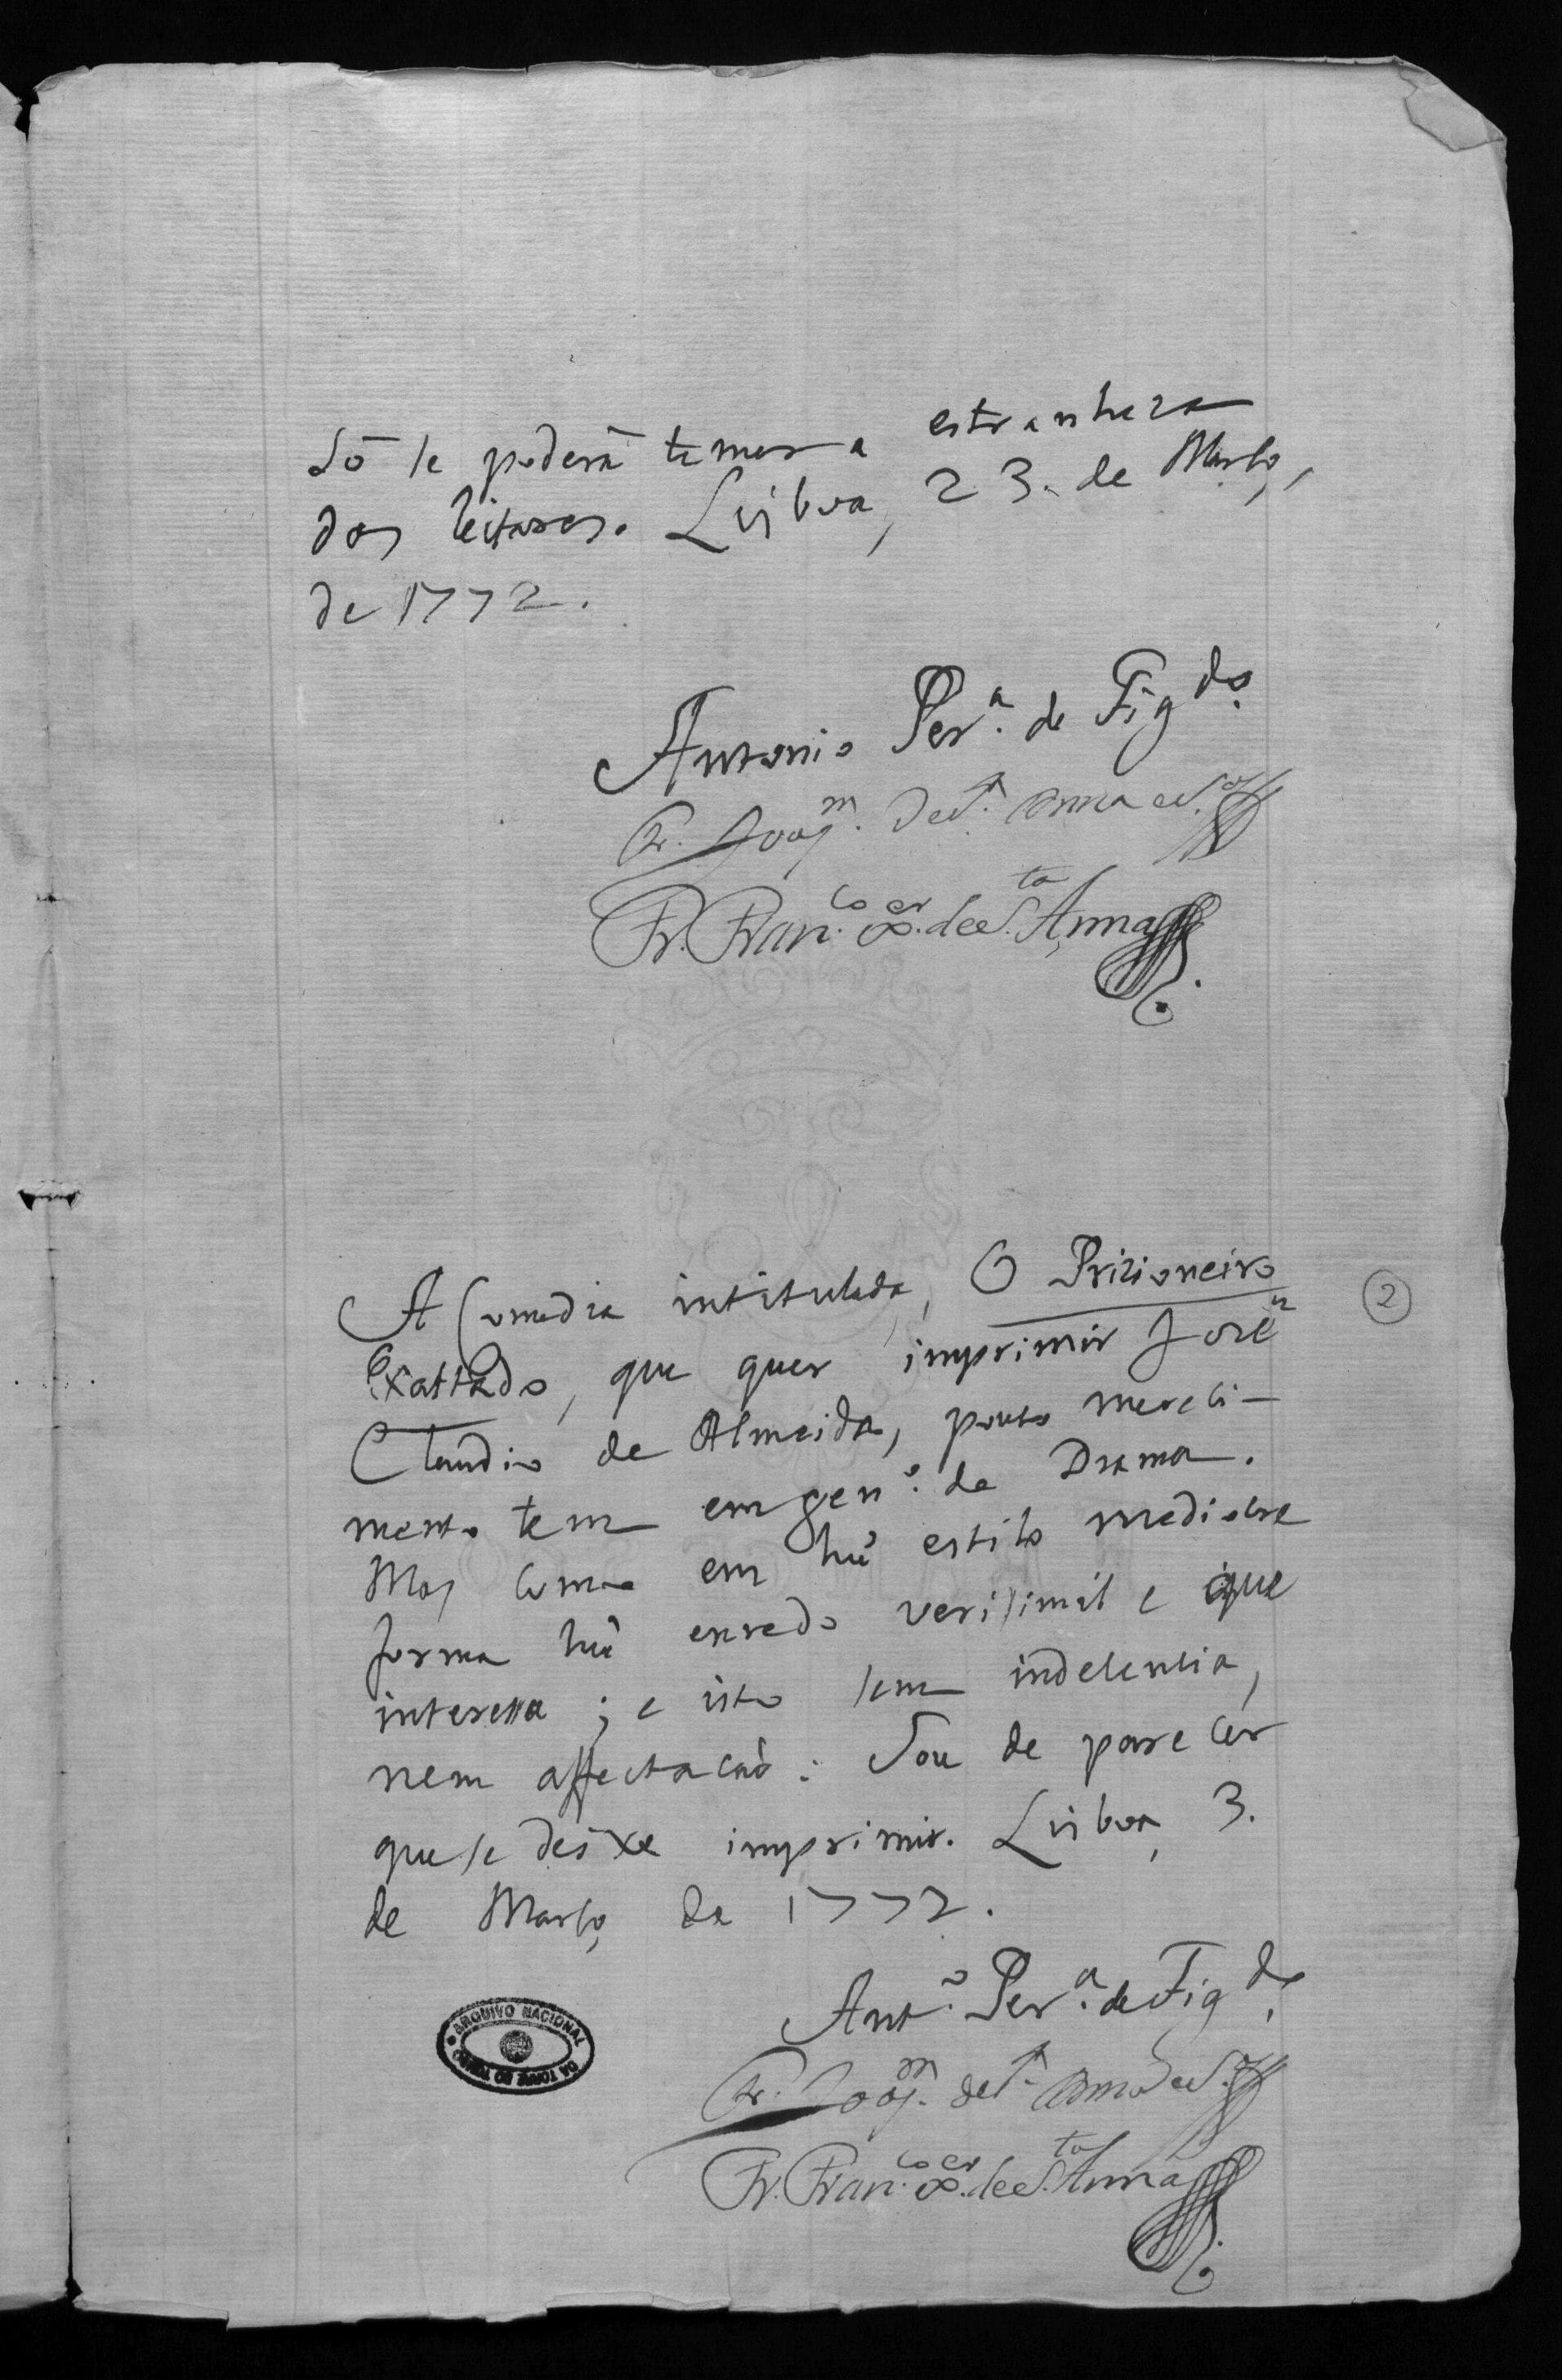 Só se poderá temer a estranheza
dos leitores. Lisboa, 23. de Março,
de 1772.
Antonio Per.ª de Fig.do
Fr. Joaq.m de S.ta Anna e S.
Fr. Fran.co X.er de S.ta Anna
A Comedia intitulada, O Prizioneiro
Exattado, que quer imprimir José
Claudio de Almeida, pouco mereci-
mento tem em gen.º de Drama.
Mas como em hũ estilo mediocre
forma hũ enredo verisimil e que
interessa; e isto sem indecencia,
nem affectacaõ: Sou de parecer
que se deixe imprimir. Lisboa, 3.
de Março de 1772.
Ant.º Per.ª de Fig.do
Fr. Joaq.m de S.ta Anna e S.
Fr. Fran.co X.er de S.ta Anna
2
ARQUIVO NACIONAL
DA TORRE DO TOMBO